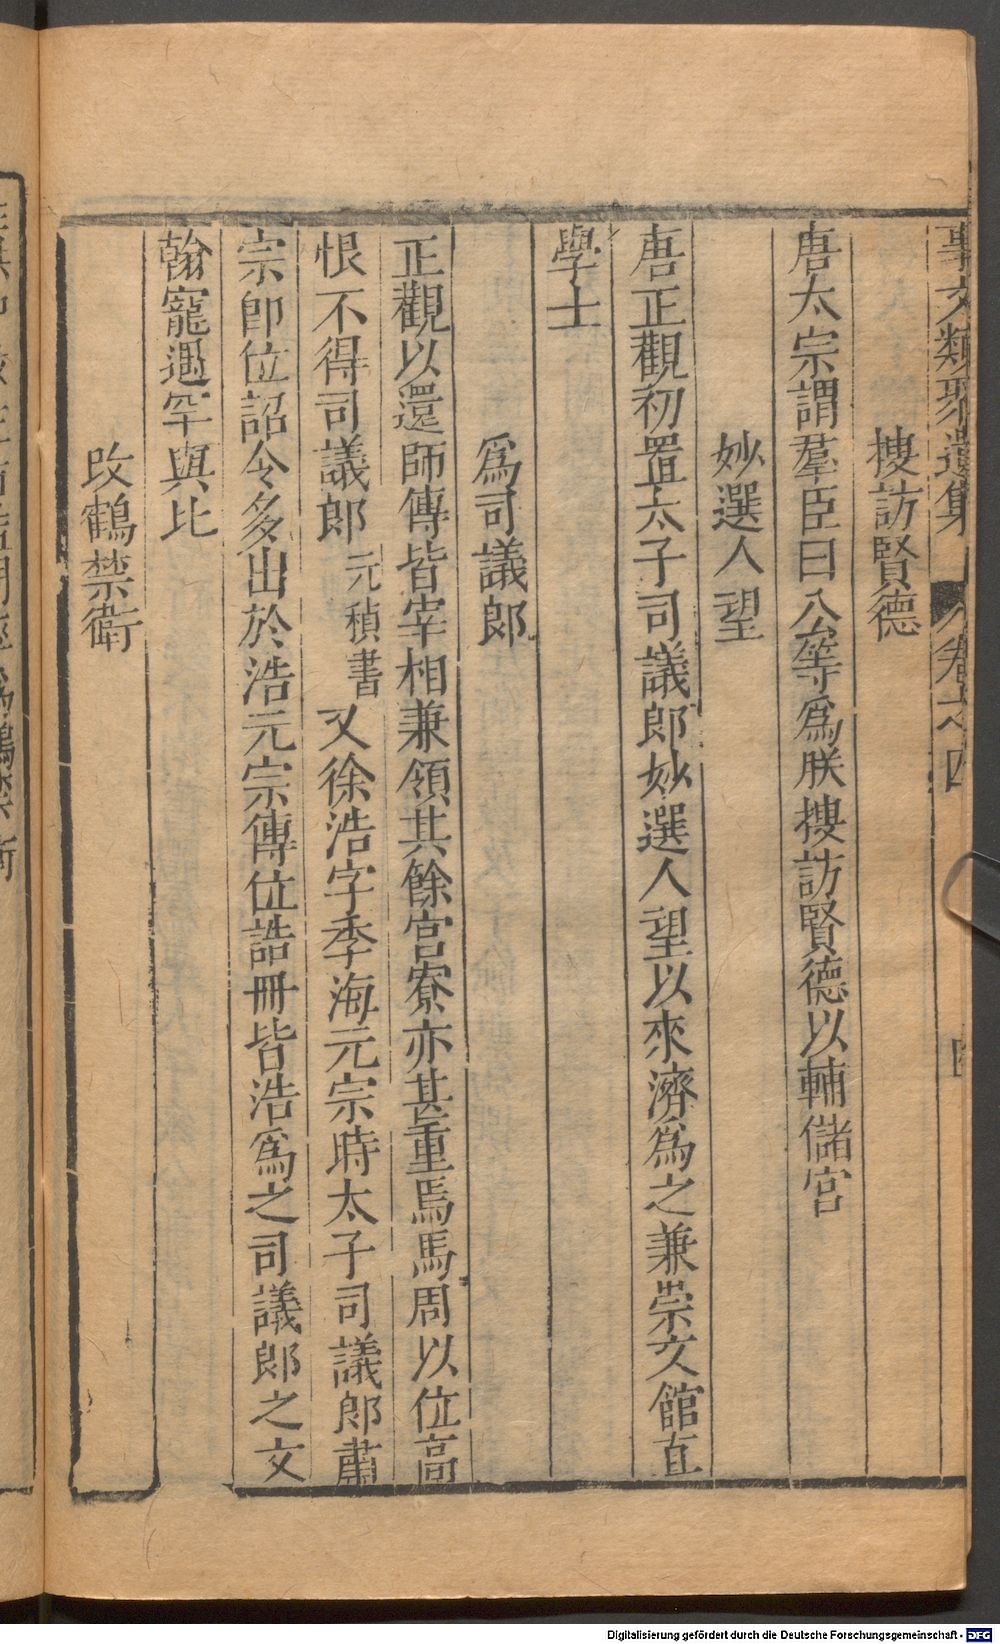 事文類聚遺集 卷之四
搜訪賢德
唐太宗謂羣臣曰公等爲朕搜訪賢德以輔儲宮
妙選人望
唐正觀初置太子司議郎妙選人望以來濟爲之兼崇文館直
學士
爲司議郎
正觀以還師傳皆宰相兼領其餘宮寮亦甚重焉馬周以位高
恨不得司議郎元稹書又徐浩字季海元宗時太子司議郎肅
宗即位詔令多出於浩元宗傳位誥冊皆浩爲之司議郎之文
翰寵遇罕與比
改鶴禁衛
Digitalisierung gefördert durch die Deutsche Forschungsgemeinschaft - DFG